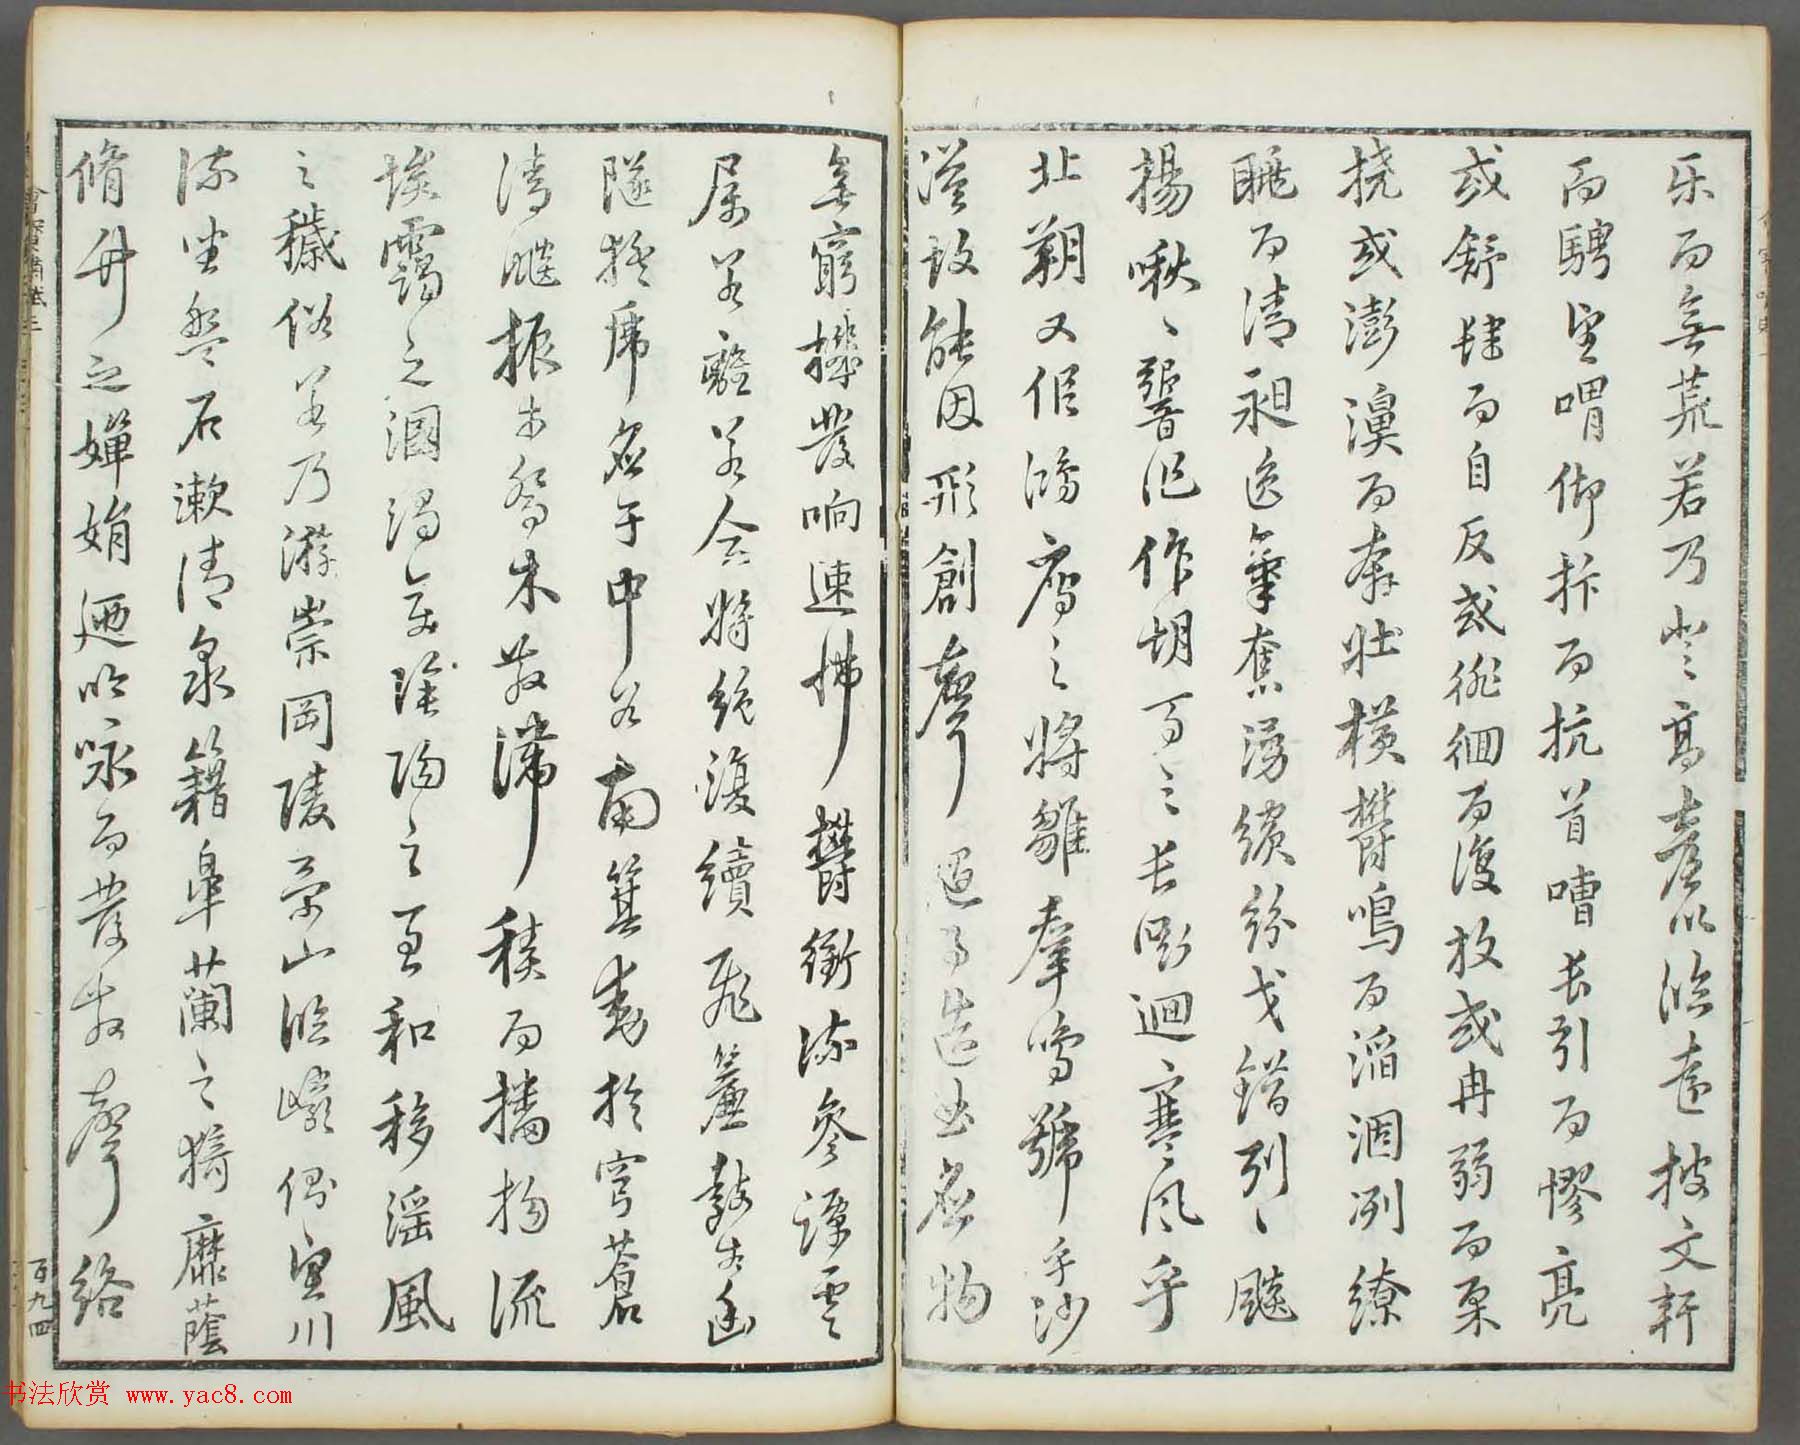 乐而無荒若乃登高臺以臨遠披文軒
而騁望喟仰抃而抗首嘈長引而憀亮
或舒肆而自反或徘徊而復放或冉弱而柔
撓或澎濞而奔壯橫鬱鳴而滔涸冽繚
眺而清昶逸氣奮湧繽紛交錯列〻飈
揚啾〻響作奏胡馬之長思迴寒風乎
北朔又似鴻鴈之將雛羣鳴號乎沙
漠故能因形創聲隨事造曲應物
無窮機發响速怫鬱衝流參譚雲
屬若離若合將絕復續飛簾鼓於幽
隧猛虎應于中谷南箕動於穹蒼
清飈振於喬木散滯積而播揚流
埃靄之溷濁變陰陽之至和移滛風
之穢俗若乃游崇岡陵景山臨巖側望川
流坐盤石漱清泉籍皐蘭之猗靡蔭
脩竹之嬋娟迺吟詠而發散聲絡
百九四
书法欣赏 www.yac8.com